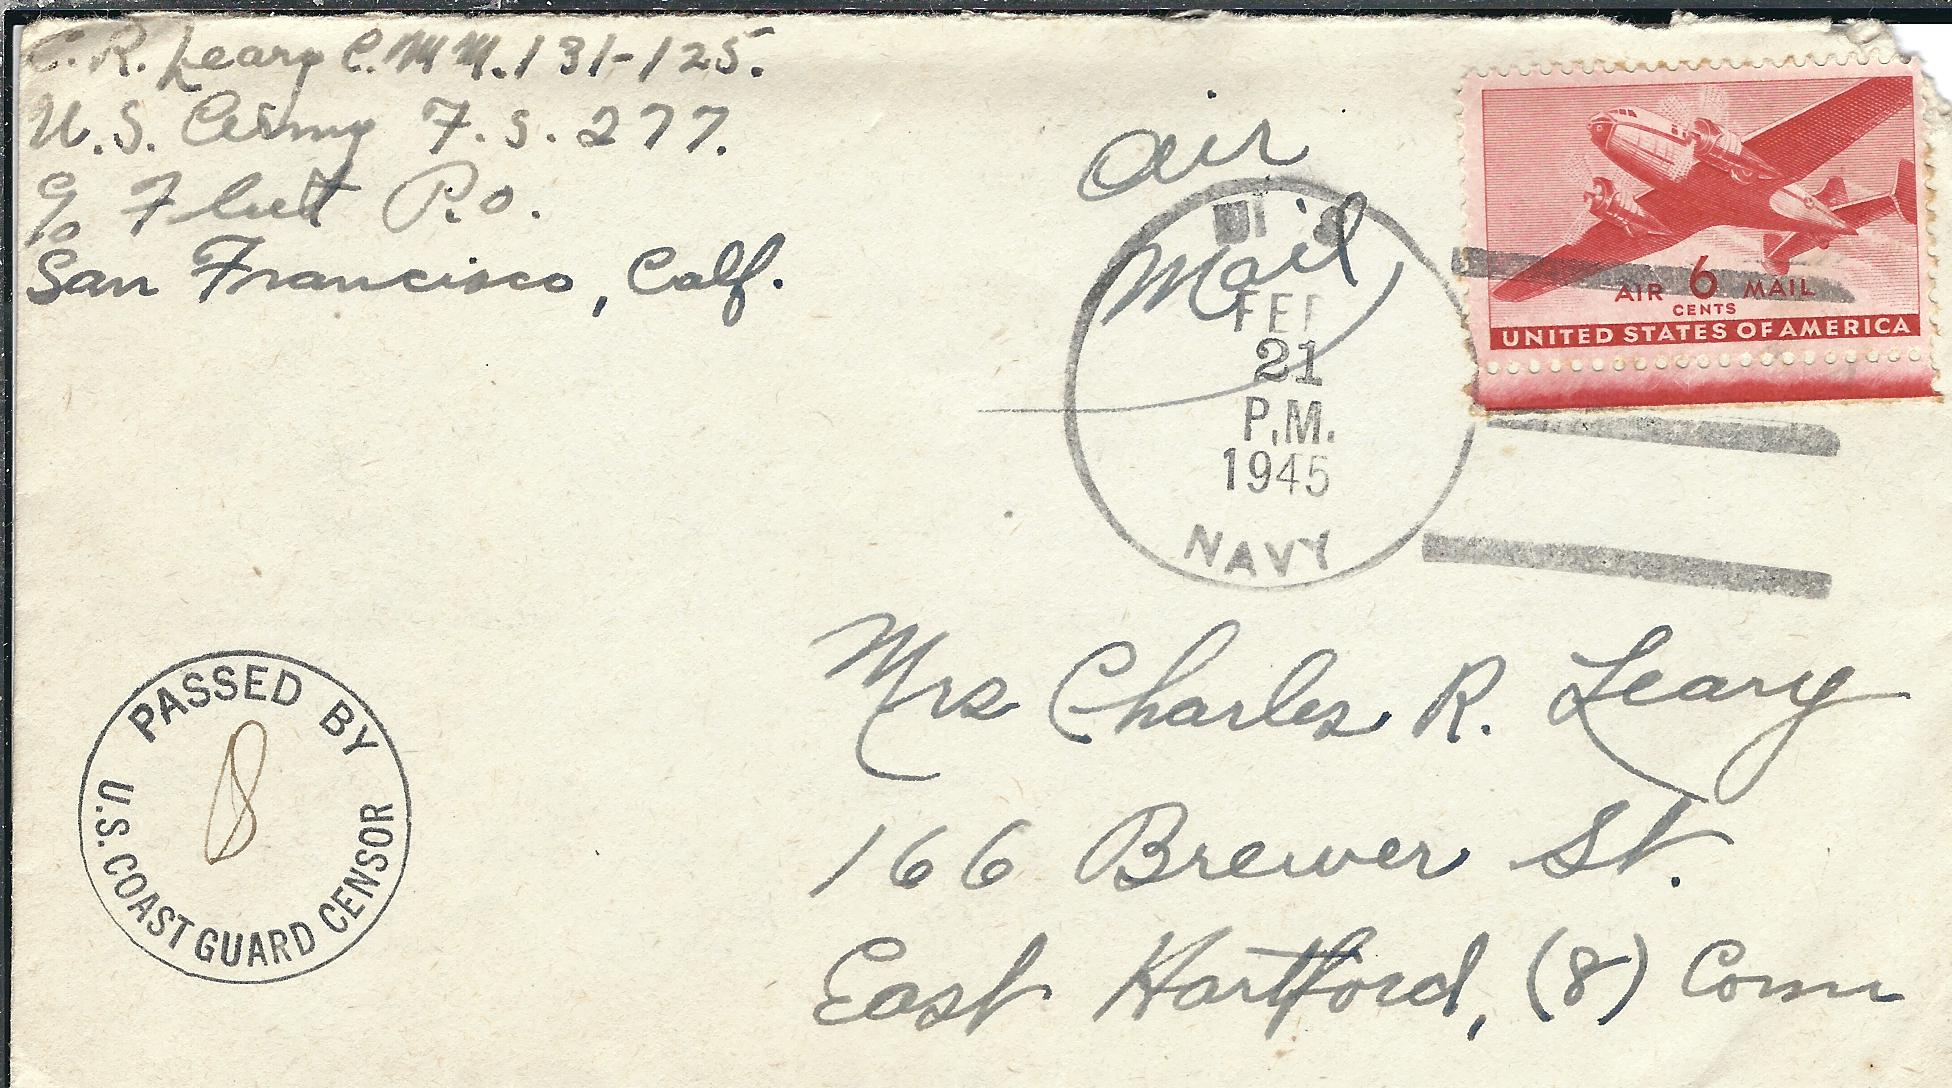 C. R. Leary C.M.M. 131-125.
U.S. Army F.S. 277.
c/o Fleet P.O.
San Francisco, Calf.
Air
Mail
U.S.
FEB
21
P.M.
1945
NAVY
AIR 6 MAIL
CENTS
UNITED STATES OF AMERICA
PASSED BY
U.S. COAST GUARD CENSOR
Mrs Charles R. Leary
166 Brewer St.
East Hartford, (8) Conn